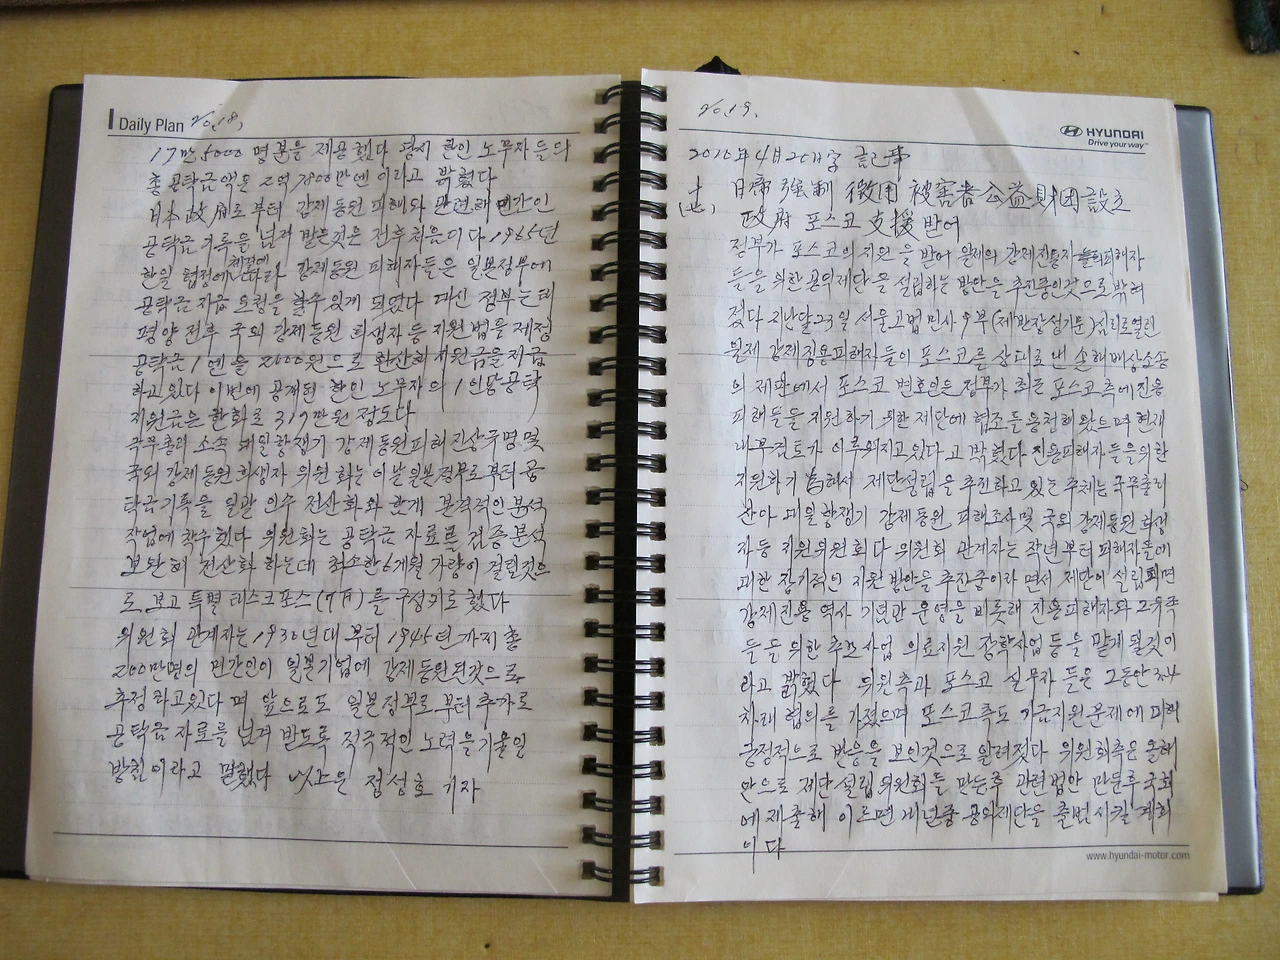 Daily Plan 20.18,
17만5000 명분을 제공했다 당시 한인 노무자들의
총 공탁금액은 2억7800만엔이라고 밝혔다
日本政府로부터 강제동원 피해와 관련해 민간인
공탁금 기록을 넘겨 받은것은 전후 처음이다 1965년
한일 협정에 따라 강제동원 피해자들은 일본정부에
공탁금 지급 요청을 할수 있게 되었다 대신 정부는 태
평양 전후 국외 강제동원 희생자등 지원법을 제정
공탁금 1엔을 2000원으로 환산해 지원금을 지급
하고있다 이번에 공개된 한인 노무자의 1인당 공탁
지원금은 한화로 319만원 정도다
국무총리 소속 대일항쟁기 강제동원피해 진상규명 및
국외 강제동원 희생자 위원회는 이날 일본정부로부터 공
탁금기록을 일괄 인수 전산화와 함께 본격적인 분석
작업에 착수했다 위원회는 공탁금 자료를 검증 분석
보완해 전산화 하는데 최소한 6개월 가량이 걸릴것으
로 보고 특별 태스크포스(TF)를 구성키로 했다
위원회 관계자는 1930년대부터 1945년까지 총
200만명의 민간인이 일본기업에 강제동원된것으로
추정하고있다며 앞으로도 일본정부로부터 추가로
공탁금 자료를 넘겨 받도록 적극적인 노력을 기울일
방침이라고 말했다 以上은 정성호 기자
20.19.
HYUNDAI
Drive your way
2010年4月20日字 記事
(七) 日帝強制 徵用 被害者公益財團設立
政府 포스코支援 받어
정부가 포스코의 지원을 받어 일제의 강제징용자 피해자
들을 위한 공익재단을 설립하는 방안을 추진중인것으로 밝혀
젔다 지난달 23일 서울고법 민사9부(재판장 성기문)심리로 열린
일제 강제징용피해자들이 포스코를 상대로 낸 손해배상소송
의 재판에서 포스코 변호인은 정부가 최근 포스코측에 징용
피해들을 지원하기 위한 재단에 협조를 요청해왔으며 현재
내부검토가 이루어지고있다고 밝혔다 징용피해자들을위한
지원하기 위해서 재단설립을 추진하고 있는 주체는 국무총리
산아 대일항쟁기 강제동원 피해조사및 국외강제동원 희생
자등 지원위원회다 위원회 관계자는 작년부터 피해자들에
대한 장기적인 지원 방안을 추진중이라 면서 재단이 설립되면
강제징용 역사 기념관 운영을 비롯해 징용피해자와 그유족
들을 위한 추모사업 의료지원 장학사업 등을 맡게 될것이
라고 밝혔다 위원측과 포스코 실무자 들은 그동안 3,4
차례 협의를 가졌으며 포스코측도 기금지원 문제에
긍정적으로 반응을 보인것으로 알려젓다 위원회측은 올해
안으로 재단설립위원회를 만든후 관련법안 만든후 국회
에 제출해 이르면 내년중 공익재단을 출범시킬 계획
이다
www.hyundai-motor.com